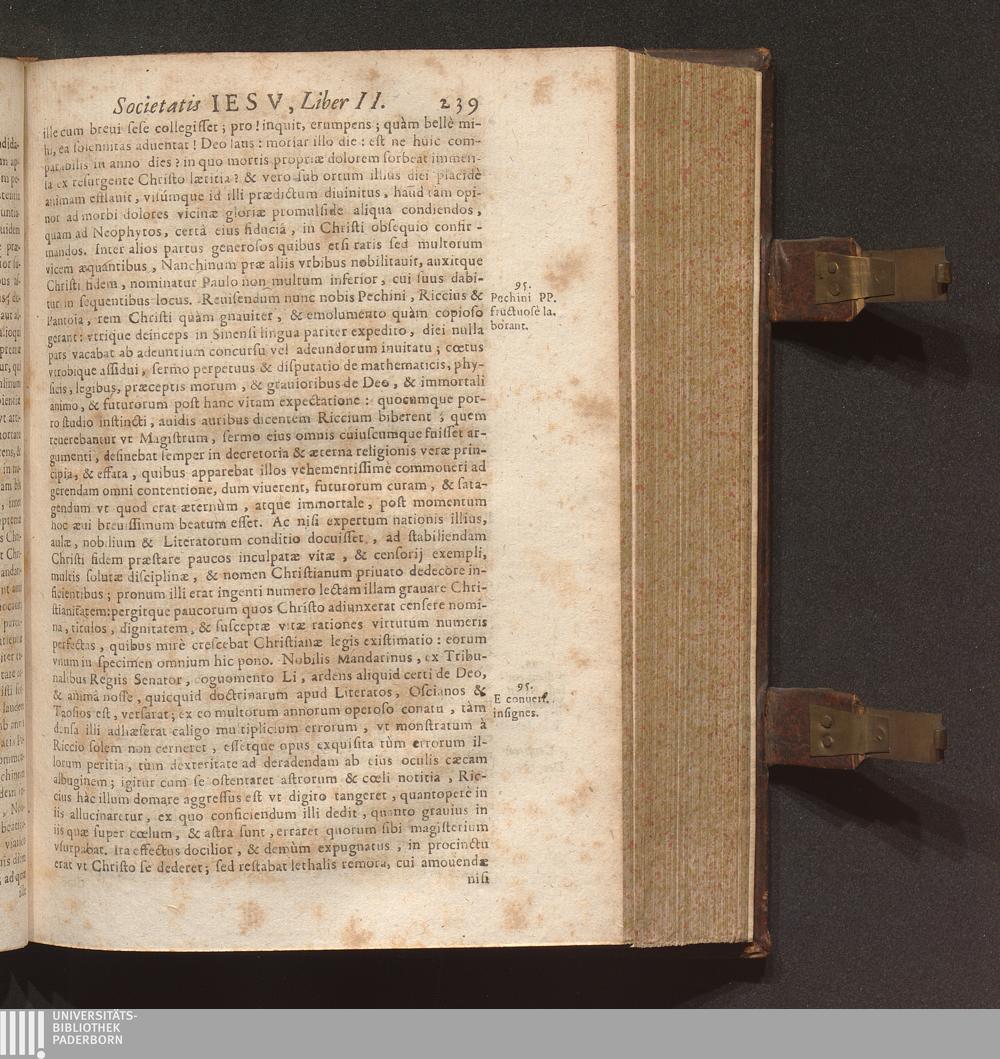 Societatis IESV, Liber II. 239
ille cum breui sese collegisset; pro! inquit, erumpens; quàm bellè mi-
hi, ea solennitas aduentat! Deo laus: moriar illo die: est ne huic com-
parabilis in anno dies? in quo mortis propriæ dolorem sorbeat immen-
sa ex resurgente Christo lætitia? & vero sub ortum illius diei placidè
animam efflauit, visúmque id illi prædictum diuinitus, haud tàm opi-
nor ad morbi dolores vicinæ gloriæ promulside aliqua condiendos,
quam ad Neophytos, certâ eius fiduciâ, in Christi obsequio confir-
mandos. Inter alios partus generosos quibus etsi raris sed multorum
vicem æquantibus, Nanchinum præ aliis vrbibus nobilitauit, auxitque
Christi fidem, nominatur Paulo non multum inferior, cui suus dabi-
tur in sequentibus locus. Reuisendum nunc nobis Pechini, Riccius &
Pantoia, rem Christi quàm gnauiter, & emolumento quàm copioso
gerant: vtrique deinceps in Sinensi lingua pariter expedito, diei nulla
pars vacabat ab adeuntium concursu vel adeundorum inuitatu; cœtus
vtrobique assidui, sermo perpetuus & disputatio de mathematicis, phy-
sicis, legibus, præceptis morum, & grauioribus de Deo, & immortali
animo, & futurorum post hanc vitam expectatione: quocumque por-
ro studio instincti, auidis auribus dicentem Riccium biberent; quem
reuerebantur vt Magistrum, sermo eius omnis cuiuscumque fuisset ar-
gumenti, desinebat semper in decretoria & æterna religionis veræ prin-
cipia, & effata, quibus apparebat illos vehementissimè commoueri ad
gerendam omni contentione, dum viuerent, futurorum curam, & sata-
gendum vt quod erat æternùm, atque immortale, post momentum
hoc æui breuissimum beatum esset. Ac nisi expertum nationis illius,
aulæ, nobilium & Literatorum conditio docuisset, ad stabiliendam
Christi fidem præstare paucos inculpatæ vitæ, & censorij exempli,
multis solutæ disciplinæ, & nomen Christianum priuato dedecore in-
ficientibus; pronum illi erat ingenti numero lectam illam grauare Chri-
stianitatem: pergitque paucorum quos Christo adiunxerat censere nomi-
na, titulos, dignitatem, & susceptæ vitæ rationes virtutum numeris
perfectas, quibus mirè crescebat Christianæ legis existimatio: eorum
vnum in specimen omnium hic pono. Nobilis Mandarinus, ex Tribu-
nalibus Regiis Senator, cognomento Li, ardens aliquid certi de Deo,
& animâ nosse, quicquid doctrinarum apud Literatos, Oscianos &
Taosios est, versarat; ex eo multorum annorum operoso conatu, tàm
densa illi adhæserat caligo multiplicium errorum, vt monstratum à
Riccio solem non cerneret, essetque opus exquisita tùm errorum il-
lorum peritia, tùm dexteritate ad deradendam ab eius oculis cæcam
albuginem; igitur cum se ostentaret astrorum & cœli notitia, Ric-
cius hâc illum domare aggressus est vt digito tangeret, quantoperè in
iis allucinaretur, ex quo conficiendum illi dedit, quanto grauius in
iis quæ super cœlum, & astra sunt, erraret quorum sibi magisterium
vsurpabat. Ita effectus docilior, & demùm expugnatus, in procinctu
erat vt Christo se dederet; sed restabat lethalis remora, cui amouendæ
nisi
95.
Pechini PP.
fructuosè la.
borant.
95.
E conuers.
insignes.
UNIVERSITÄTS-
BIBLIOTHEK
PADERBORN